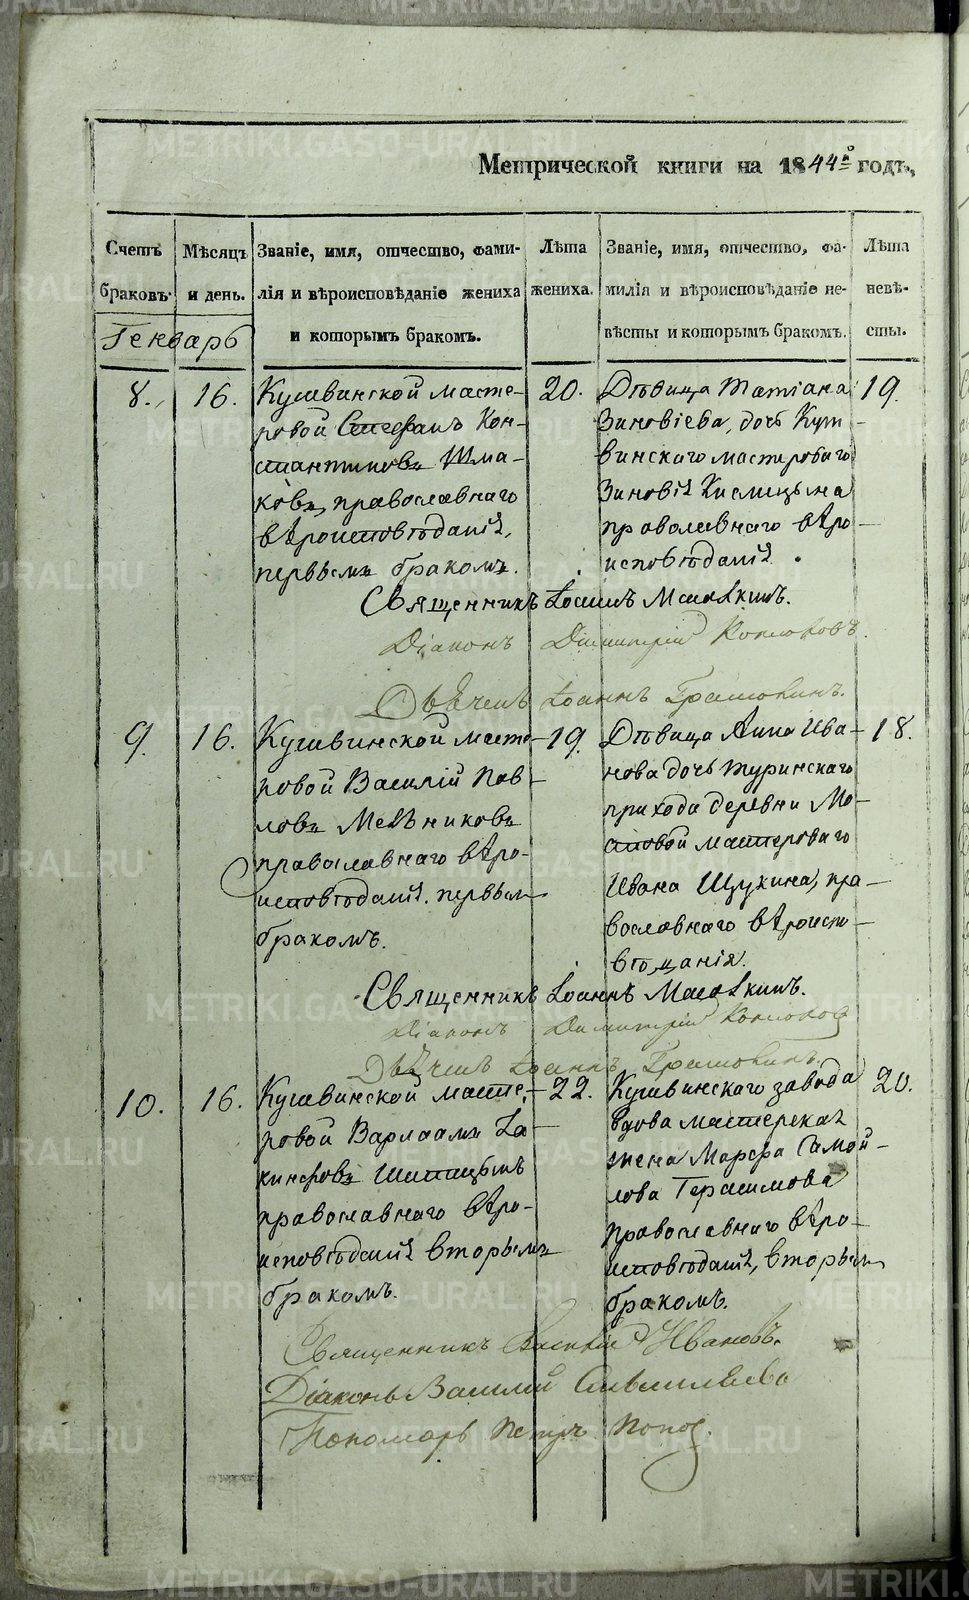 Метрической книги на 1844й годъ,
Счетъ браковъ.
Мѣсяцъ и день.
Званіе, имя, отчество, фами-
лія и вѣроисповѣданіе жениха
и которымъ бракомъ.
Лѣта жениха.
Званіе, имя, отчество, фа-
милія и вѣроисповѣданіе не-
вѣсты и которымъ бракомъ.
Лѣта невѣ-
сты.
Генварь
8.
16.
Кушвинской масте-
ровой Стефанъ Кон-
стантиновъ Шма-
ковъ, православнаго
вѣроисповѣданія,
первымъ бракомъ.
20.
Дѣвица Татіана
Зиновіева, дочь Куш-
винскаго мастероваго
Зиновія Кислицына
православнаго вѣро-
исповѣданія.
19.
Священникъ Іоаннъ
Діаконъ Димитрій
Іоаннъ
9.
16.
Кушвинской масте-
ровой Василій Пав-
ловъ Мельниковъ
православнаго вѣро-
исповѣданія. первым
бракомъ.
19.
Дѣвица Анна Ива-
нова дочь Туринскаго
прихода деревни
мастероваго
Ивана Щукина, пра-
вославнаго вѣроиспо-
вѣданія.
18.
Священникъ Іоаннъ
Діаконъ Димитрій
Іоаннъ
10.
16.
Кушвинской масте-
ровой Варлаамъ
православнаго вѣро-
исповѣданія вторымъ
бракомъ.
22.
Кушвинскаго завода
вдова мастерская
жена Марфа Самой-
лова Герасимова
православнаго вѣро-
исповѣданія, вторым
бракомъ.
20.
Священникъ Василій Ивановъ.
Діаконъ Василій
Пономарь Петръ Попов
METRIKI.GASO-URAL.RU